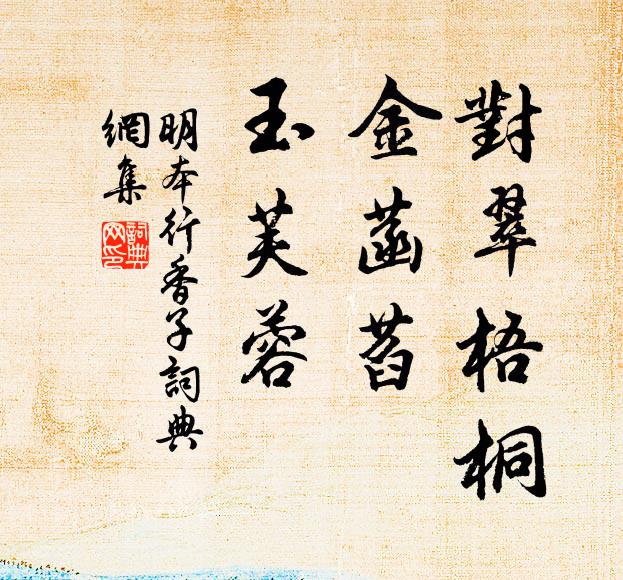 對翠梧桐
金菡萏
玉芙蓉
明本行香子詞典
網集
詞典
网印